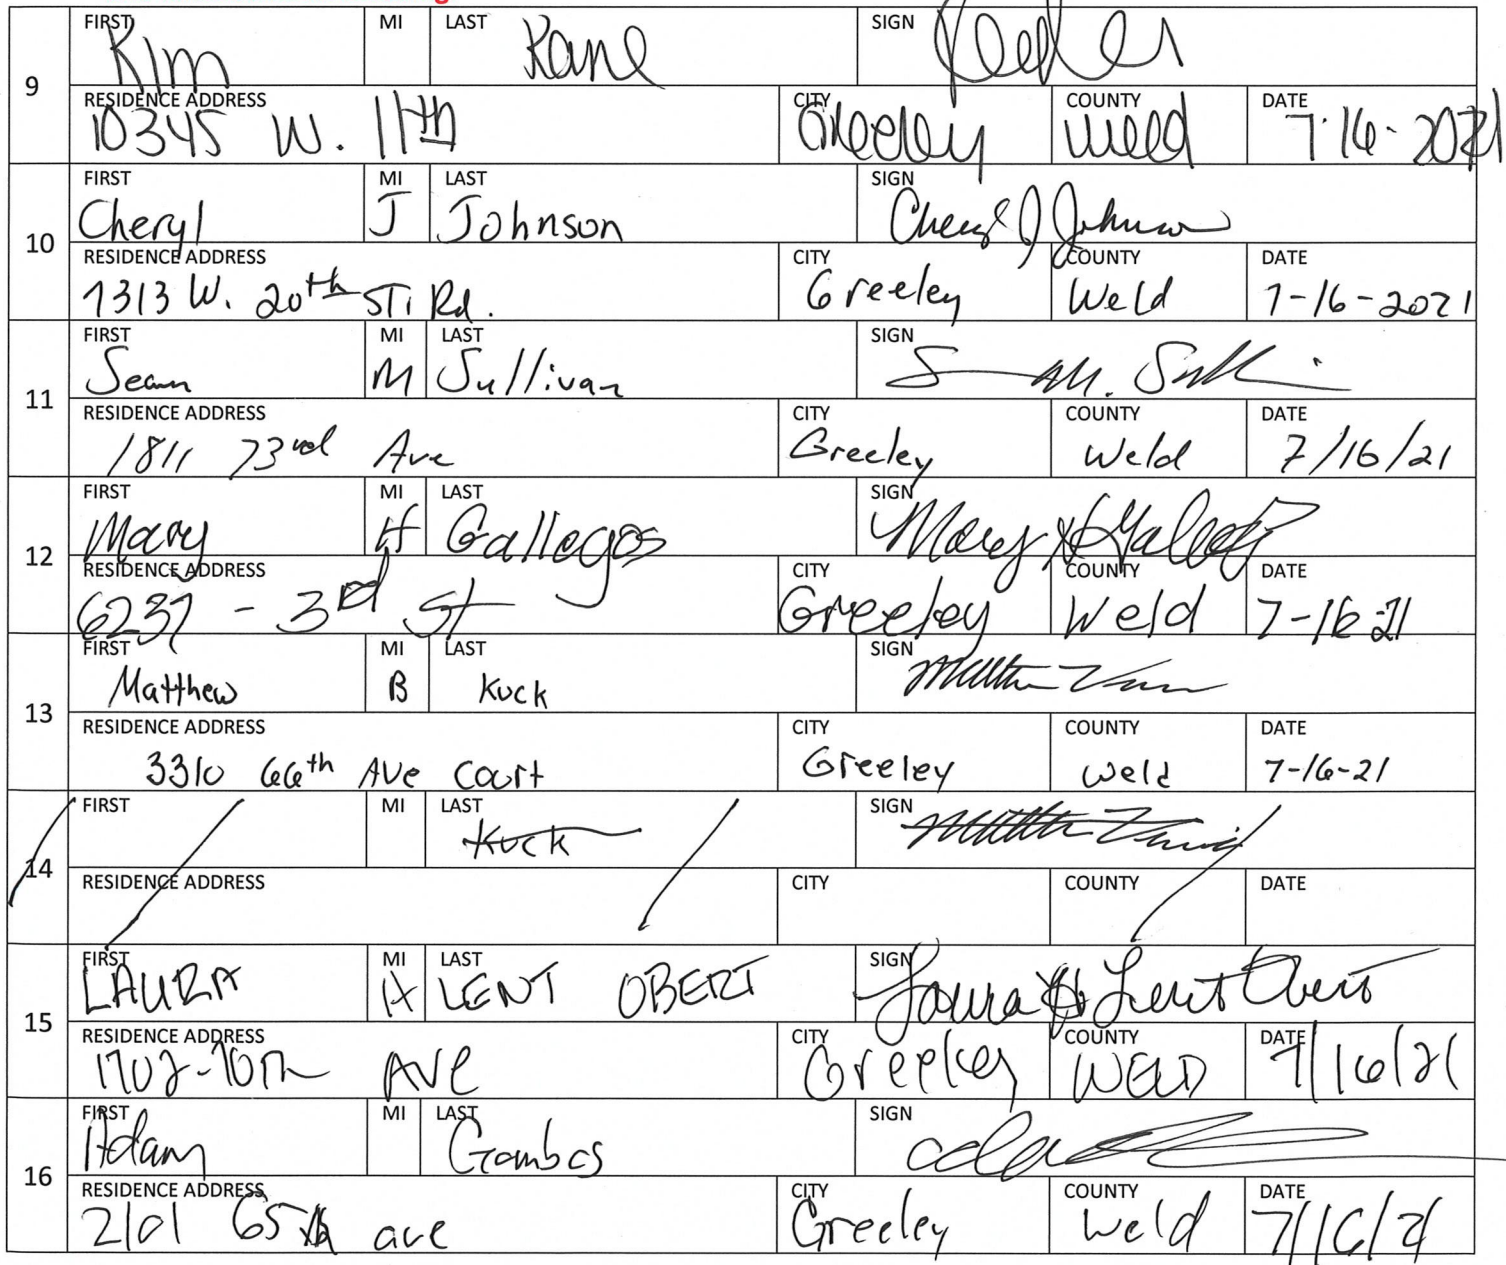 FIRST Kim MI LAST Kane SIGN
9
RESIDENCE ADDRESS 10345 W. 11th CITY Greeley COUNTY Weld DATE 7-16-2021
FIRST Cheryl MI J LAST Johnson SIGN Cheryl J Johnson
10
RESIDENCE ADDRESS 7313 W. 20th ST. Rd. CITY Greeley COUNTY Weld DATE 7-16-2021
FIRST Sean MI M LAST Sullivan SIGN S M. Sulli
11
RESIDENCE ADDRESS 1811 73rd Ave CITY Greeley COUNTY Weld DATE 7/16/21
FIRST Mary MI H LAST Gallegos SIGN Mary H Gallegos
12
RESIDENCE ADDRESS 6237 - 3rd St CITY Greeley COUNTY Weld DATE 7-16-21
FIRST Matthew MI B LAST Kuck SIGN
13
RESIDENCE ADDRESS 3310 66th AVe Court CITY Greeley COUNTY Weld DATE 7-16-21
FIRST MI LAST Kuck SIGN
14
RESIDENCE ADDRESS CITY COUNTY DATE
FIRST LAURA MI A LAST LENT OBERT SIGN Laura A Lent Obert
15
RESIDENCE ADDRESS AVe CITY Greeley COUNTY WELD DATE 7/16/21
FIRST Adam MI LAST Gombos SIGN
16
RESIDENCE ADDRESS 2101 65th ave CITY Greeley COUNTY Weld DATE 7/16/21